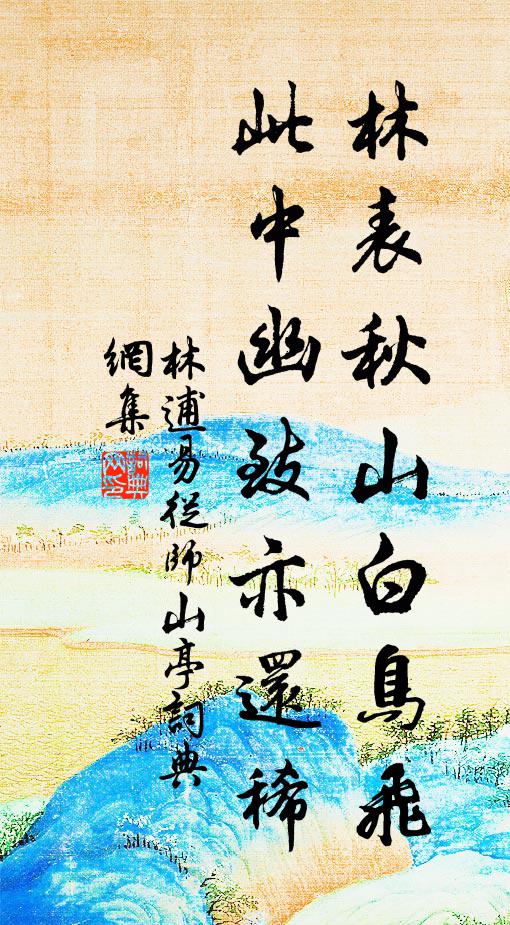 林表秋山白鳥飛
此中幽致亦還稀
林逋易從師山亭詞典
網集